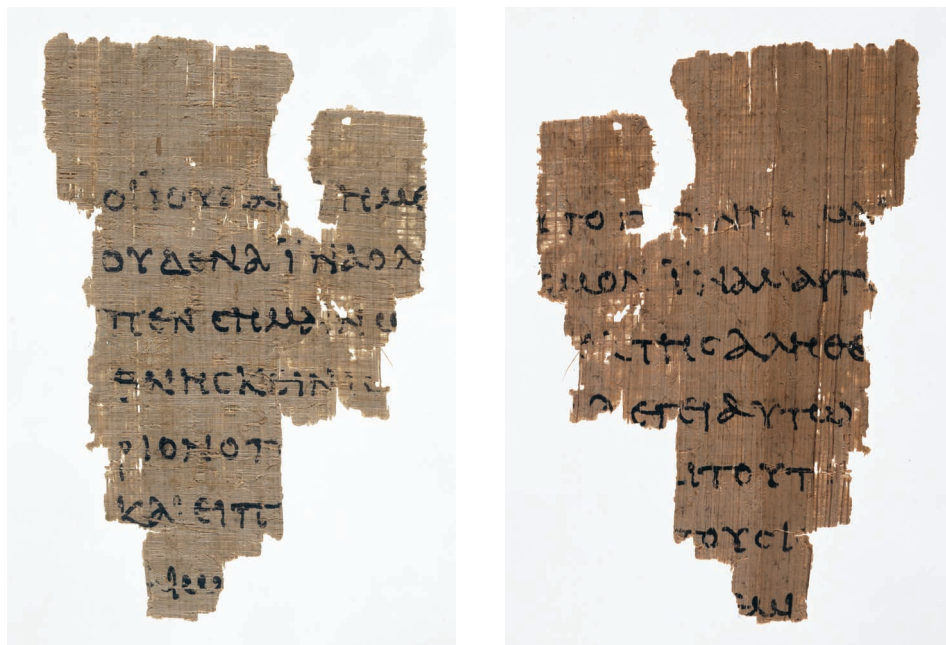 ΟΙΪΟΥΔΑΙ ΗΜΕ
ΟΥΔΕΝΑΪΝΑΟΛ
ΠΕΝϹΗΜΑΙΝΩ
ΘΝΗϹΚΕΙΝ
ΡΙΟΝΟΠ
ΚΑΙΕΙΠ
ΜΙΩ
ΤΟΓ ΓΕΝΝΗΜΑΙ
ϹΜΟΝΪΝΑΜΑΡΤΥ
ΤΗϹΑΛΗΘΕ
ΛΕΓΕΙΑΥΤΩ
ΑΙΤΟΥΤ
ΤΟΥϹΙ
ΕΜΙ